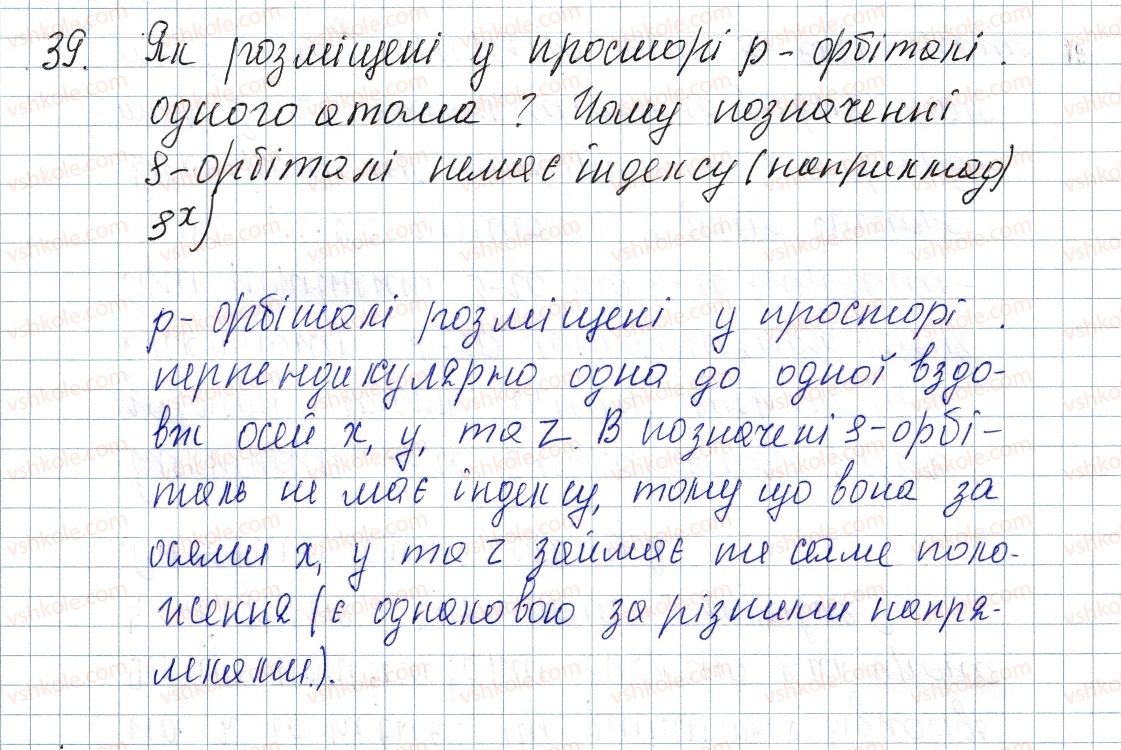 39. Як розміщені у просторі p-орбіталі.
одного атома? Чому позначенні
s-орбіталі немає індексу (наприклад)
sˣ)
p-орбіталі розміщені у просторі.
перпендикулярно одна до одної вздо-
вж осей x, y, та z. В позначені s-орбі-
таль не має індексу, тому що вона за
осями x, y та z займає те саме поло-
ження (є однаковою за різними напря-
мками.).